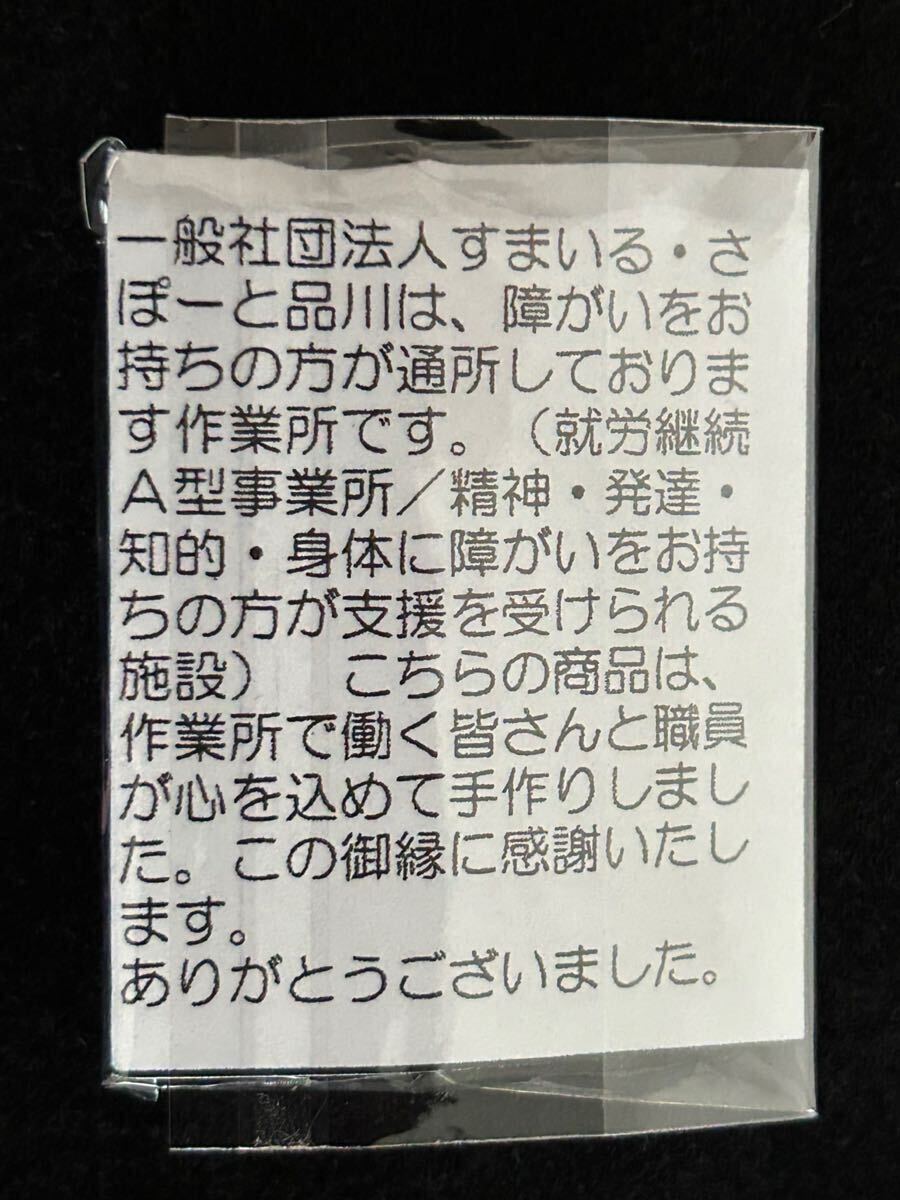 一般社団法人すまいる・さ
ぽーと品川は、障がいをお
持ちの方が通所しておりま
す作業所です。（就労継続
Ａ型事業所／精神・発達・
知的・身体に障がいをお持
ちの方が支援を受けられる
施設）　こちらの商品は、
作業所で働く皆さんと職員
が心を込めて手作りしまし
た。この御縁に感謝いたし
ます。
ありがとうございました。